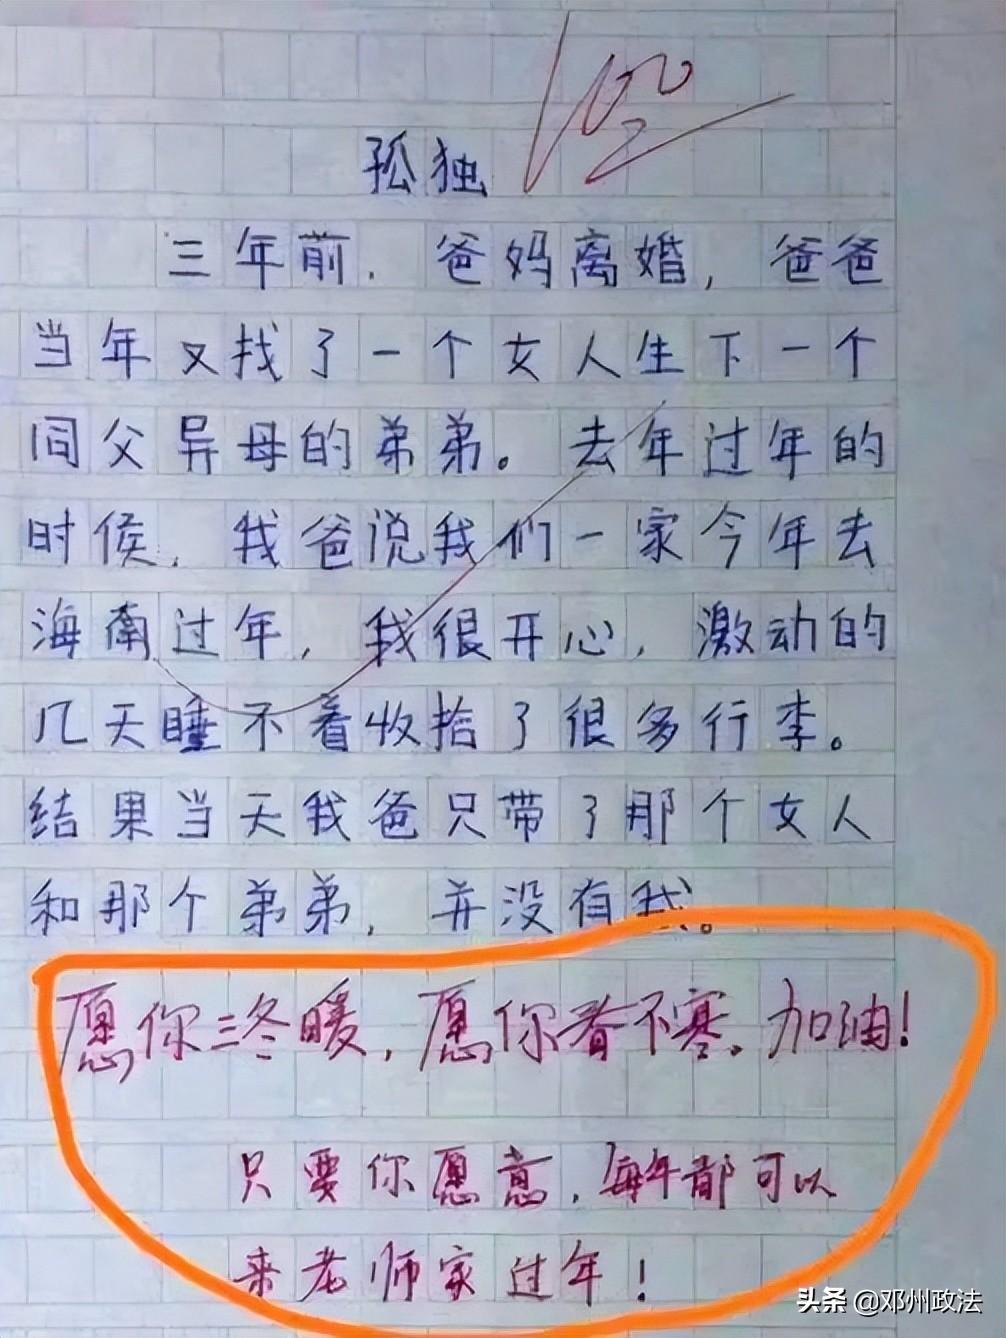 100
孤独
三年前，爸妈离婚，爸爸
当年又找了一个女人生下一个
同父异母的弟弟。去年过年的
时候，我爸说我们一家今年去
海南过年，我很开心，激动的
几天睡不着收拾了很多行李。
结果当天我爸只带了那个女人
和那个弟弟，并没有我。
愿你三冬暖，愿你春不寒。加油！
只要你愿意，每年都可以
来老师家过年！
头条 @邓州政法